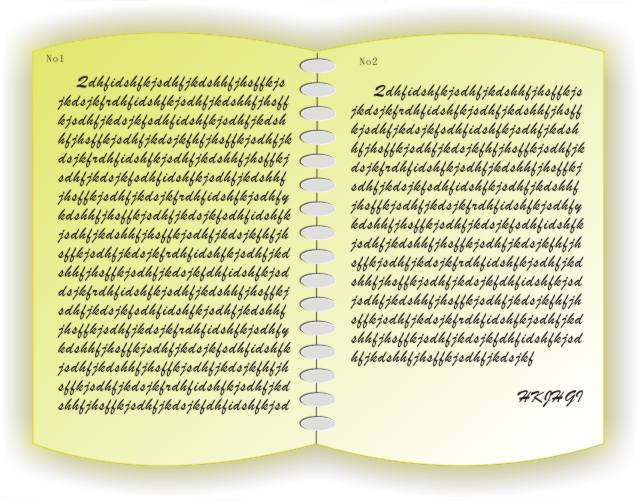 No1
Qdhfidshfkjsdhfjkdshhfjhsffkjs
jkdsjkfrdhfidshfkjsdhfjkdshhfjhsff
kjsdhfjkdsjkfsdhfidshfkjsdhfjkdsh
hfjhsffkjsdhfjkdsjkfhfjhsffkjsdhfjk
dsjkfrdhfidshfkjsdhfjkdshhfjhsffkj
sdhfjkdsjkfsdhfidshfkjsdhfjkdshhf
jhsffkjsdhfjkdsjkfrdhfidshfkjsdhfy
kdshhfjhsffkjsdhfjkdsjkfsdhfidshfk
jsdhfjkdshhfjhsffkjsdhfjkdsjkfhfjh
sffkjsdhfjkdsjkfrdhfidshfkjsdhfjkd
shhfjhsffkjsdhfjkdsjkfdhfidshfkjsd
dsjkfrdhfidshfkjsdhfjkdshhfjhsffkj
sdhfjkdsjkfsdhfidshfkjsdhfjkdshhf
jhsffkjsdhfjkdsjkfrdhfidshfkjsdhfy
kdshhfjhsffkjsdhfjkdsjkfsdhfidshfk
jsdhfjkdshhfjhsffkjsdhfjkdsjkfhfjh
sffkjsdhfjkdsjkfrdhfidshfkjsdhfjkd
shhfjhsffkjsdhfjkdsjkfdhfidshfkjsd
No2
Qdhfidshfkjsdhfjkdshhfjhsffkjs
jkdsjkfrdhfidshfkjsdhfjkdshhfjhsff
kjsdhfjkdsjkfsdhfidshfkjsdhfjkdsh
hfjhsffkjsdhfjkdsjkfhfjhsffkjsdhfjk
dsjkfrdhfidshfkjsdhfjkdshhfjhsffkj
sdhfjkdsjkfsdhfidshfkjsdhfjkdshhf
jhsffkjsdhfjkdsjkfrdhfidshfkjsdhfy
kdshhfjhsffkjsdhfjkdsjkfsdhfidshfk
jsdhfjkdshhfjhsffkjsdhfjkdsjkfhfjh
sffkjsdhfjkdsjkfrdhfidshfkjsdhfjkd
shhfjhsffkjsdhfjkdsjkfdhfidshfkjsd
jsdhfjkdshhfjhsffkjsdhfjkdsjkfhfjh
sffkjsdhfjkdsjkfrdhfidshfkjsdhfjkd
shhfjhsffkjsdhfjkdsjkfdhfidshfkjsd
hfjkdshhfjhsffkjsdhfjkdsjkf
HKJHGI